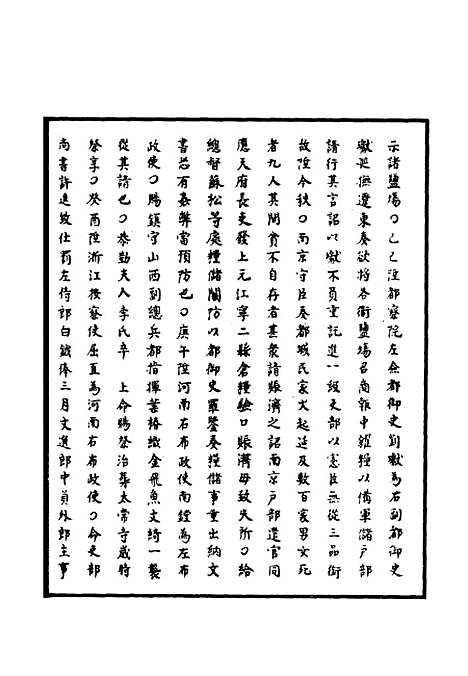 示諸鹽場〇己巳陞都察院左僉都御史劉巘為右副都御史
巘巡撫遼東奏欲將各衛鹽場召商報中糴糧以備軍儲戶部
請行其言詔以巘不負重託進一級吏部以憲臣無從三品銜
故陞今秩〇南京守臣奏都城民家火起延及數百家男女死
者九人其間貧不自存者甚衆請賑濟之詔南京戶部遣官同
應天府長吏發上元江寧二縣倉糧驗口賑濟毋致失所〇給
總督蘇松等處糧儲關防以都御史羅鑒奏糧儲事重出納文
書恐有姦弊當預防也〇庚午陞河南右布政使南鏜為左布
政使〇賜鎮守山西副總兵都指揮葉椿織金飛魚文綺一襲
從其請也〇恭勤夫人李氏卒 上命賜祭治葬太常寺歲時
祭享〇癸酉陞浙江按察使屈直為河南右布政使〇令吏部
尚書許進致仕罰左侍郎白鉞俸三月文選郎中員外郎主事